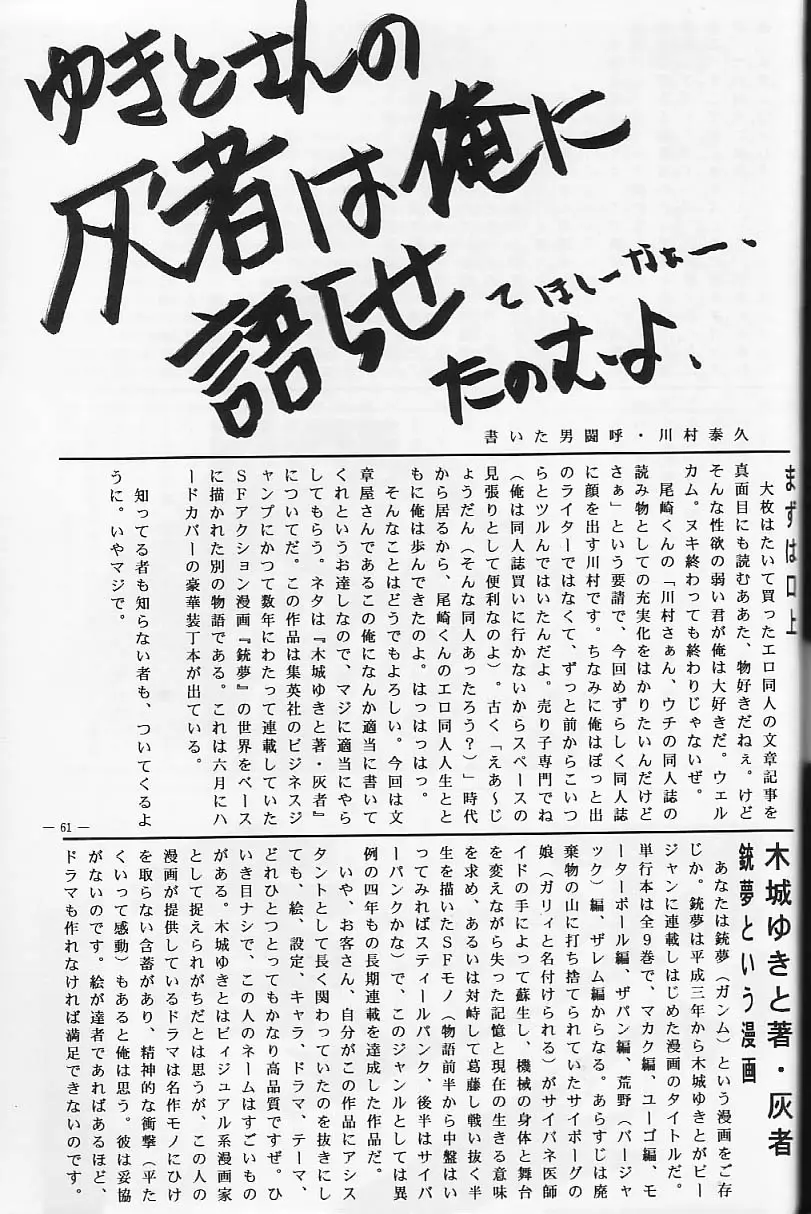 ゆきとさんの
灰者は俺に
語らせ
てほしーなぁー、
たのむよ、
書いた男闘呼・川村泰久
まずは口上
　大枚はたいて買ったエロ同人の文章記事を
真面目にも読むああた、物好きだねぇ。けど
そんな性欲の弱い君が俺は大好きだ。ウェル
カム。ヌキ終わっても終わりじゃないぜ。
　尾崎くんの「川村さぁん、ウチの同人誌の
読み物としての充実化をはかりたいんだけど
さぁ」という要請で、今回めずらしく同人誌
に顔を出す川村です。ちなみに俺はぽっと出
のライターではなくて、ずっと前からこいつ
らとツルんではいたんだよ。売り子専門でね
（俺は同人誌買いに行かないからスペースの
見張りとして便利なのよ）。古く「えあ～じ
ょうだん（そんな同人あったろう？）」時代
から居るから、尾崎くんのエロ同人人生とと
もに俺は歩んできたのよ。はっはっはっ。
　そんなことはどうでもよろしい。今回は文
章屋さんであるこの俺になんか適当に書いて
くれというお達しなので、マジに適当にやら
してもらう。ネタは『木城ゆきと著・灰者』
についてだ。この作品は集英社のビジネスジ
ャンプにかつて数年にわたって連載していた
ＳＦアクション漫画『銃夢』の世界をベース
に描かれた別の物語である。これは六月にハ
ードカバーの豪華装丁本が出ている。
　知ってる者も知らない者も、ついてくるよ
うに。いやマジで。
— 61 —
木城ゆきと著・灰者
銃夢という漫画
　あなたは銃夢（ガンム）という漫画をご存
じか。銃夢は平成三年から木城ゆきとがビー
ジャンに連載しはじめた漫画のタイトルだ。
単行本は全９巻で、マカク編、ユーゴ編、モ
ーターボール編、ザパン編、荒野（バージャ
ック）編、ザレム編からなる。あらすじは廃
棄物の山に打ち捨てられていたサイボーグの
娘（ガリィと名付けられる）がサイバネ医師
イドの手によって蘇生し、機械の身体と舞台
を変えながら失った記憶と現在の生きる意味
を求め、あるいは対峙して葛藤し戦い抜く半
生を描いたＳＦモノ（物語前半から中盤はい
ってみればスティールパンク、後半はサイバ
ーパンクかな）で、このジャンルとしては異
例の四年もの長期連載を達成した作品だ。
　いや、お客さん、自分がこの作品にアシス
タントとして長く関わっていたのを抜きにし
ても、絵、設定、キャラ、ドラマ、テーマ、
どれひとつとってもかなり高品質ですぜ。ひ
いき目ナシで、この人のネームはすごいもの
がある。木城ゆきとはビィジュアル系漫画家
として捉えられがちだとは思うが、この人の
漫画が提供しているドラマは名作モノにひけ
を取らない含蓄があり、精神的な衝撃（平た
くいって感動）もあると俺は思う。彼は妥協
がないのです。絵が達者であればあるほど、
ドラマも作れなければ満足できないのです。